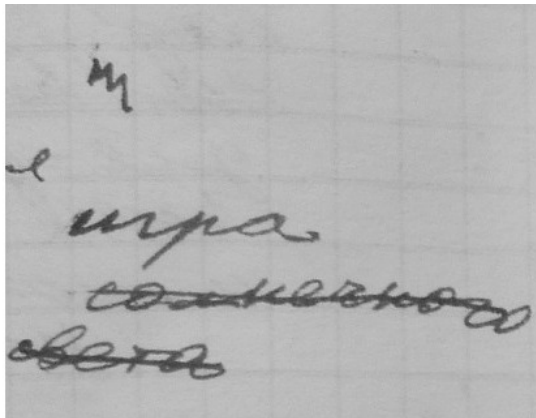 игра
солнечного
света